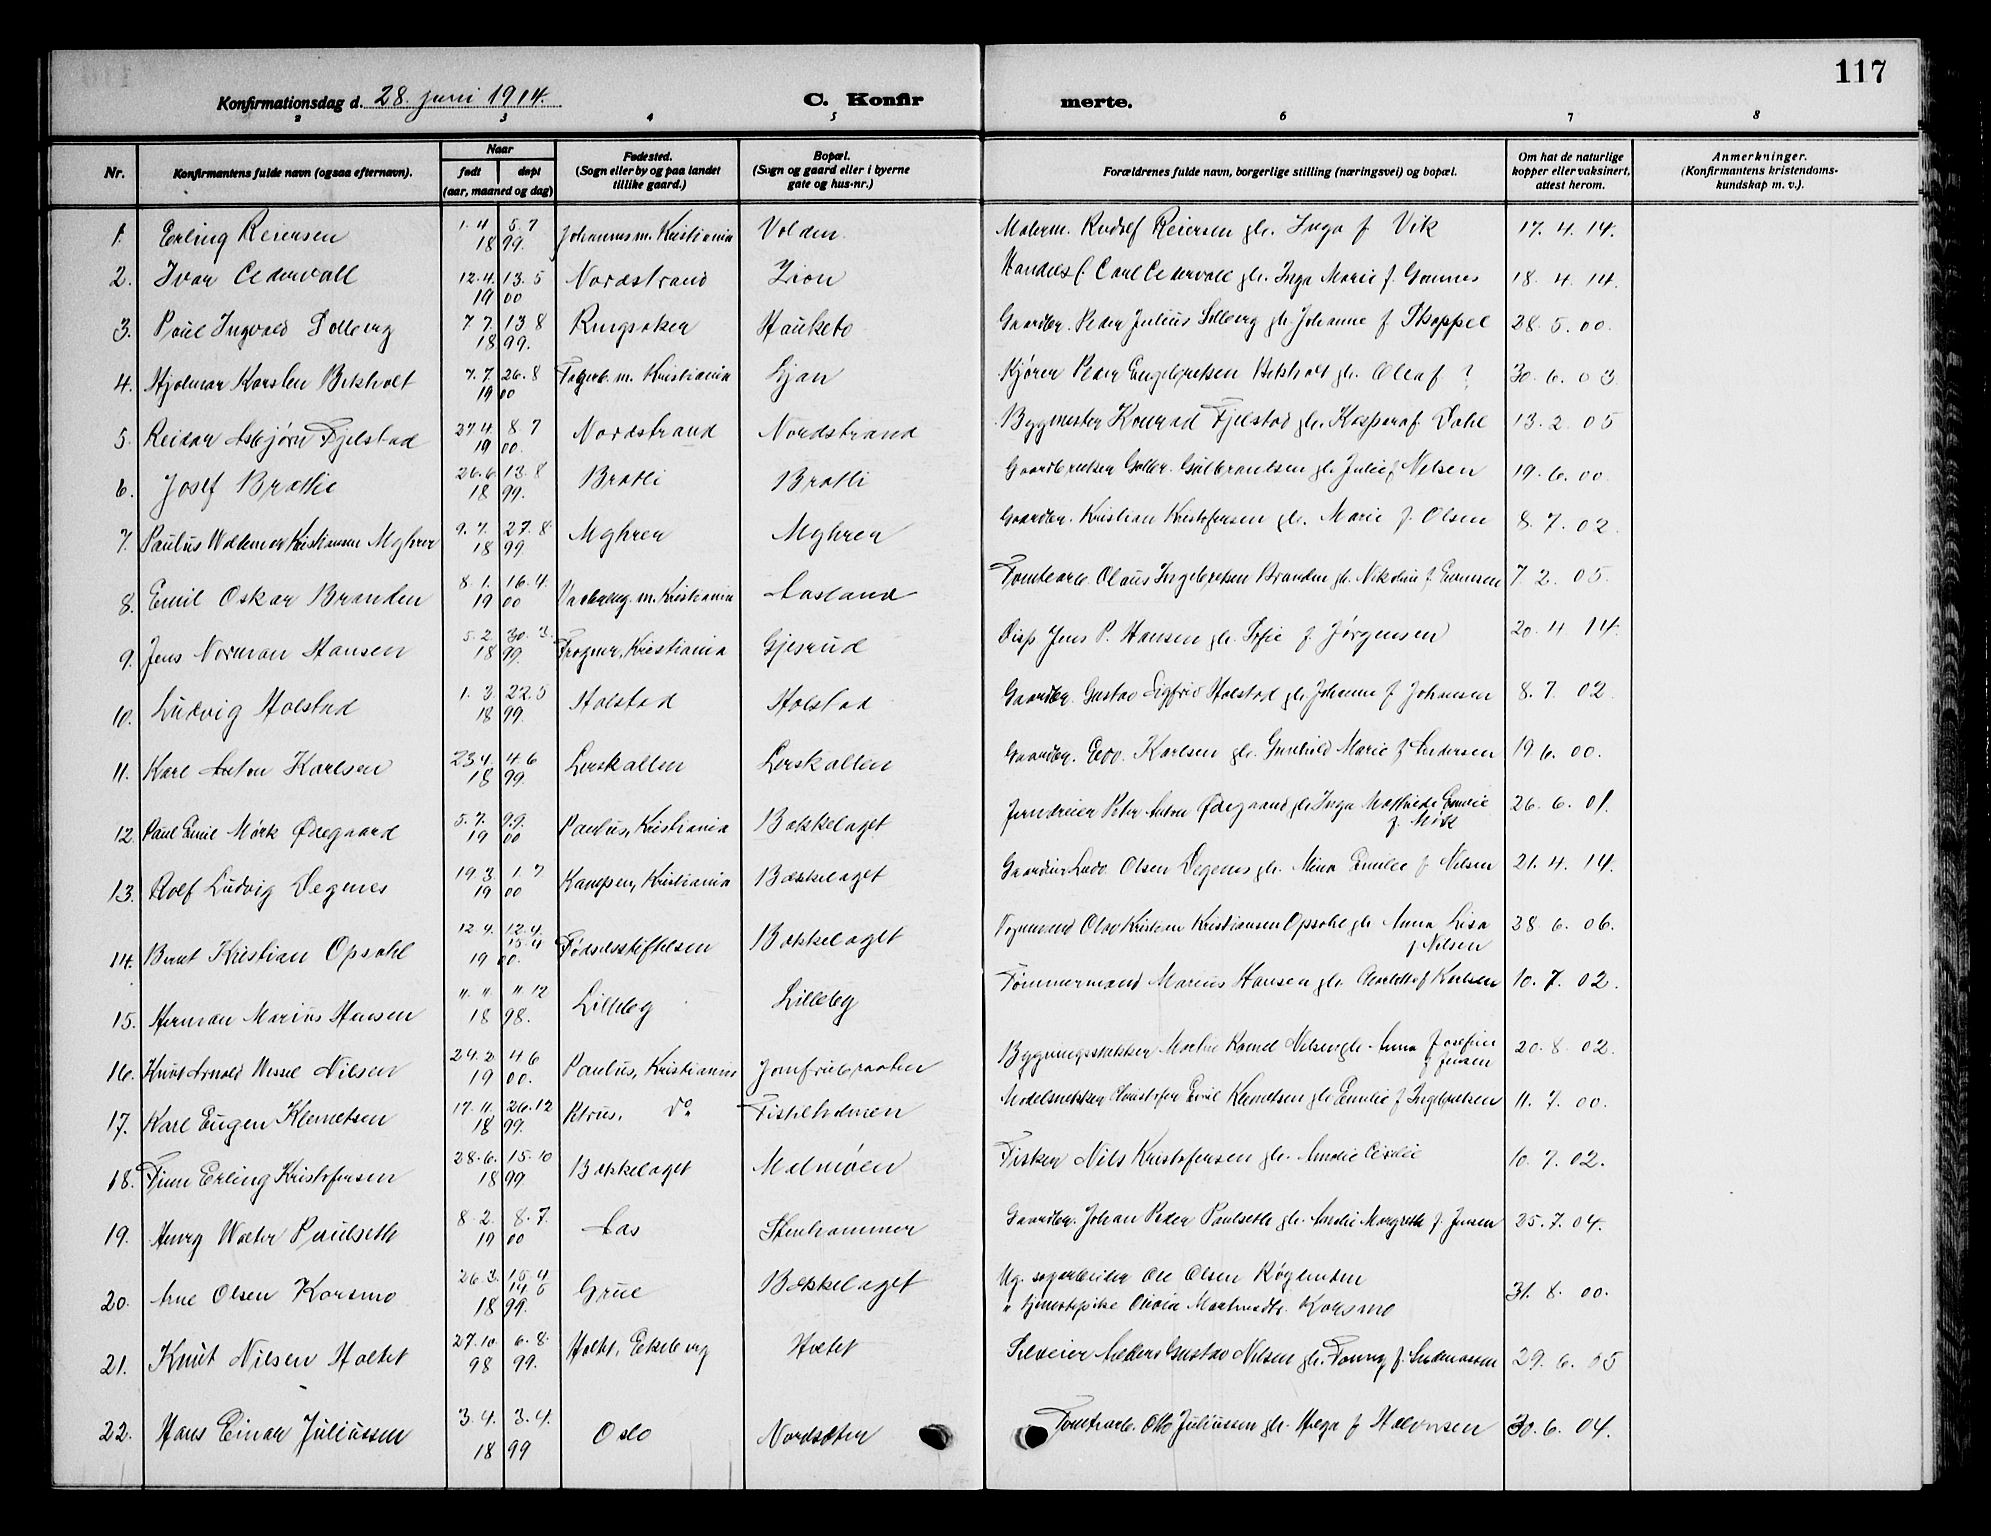 117
Konfirmationsdag d. 28. juni 1914.
C. Konfir merte.
2 3 4 5 6 7 8
Nr.
Konfirmantens fulde navn (ogsaa efternavn).
Naar
født døpt
(aar, maaned og dag)
Fødested.
(Sogn eller by og paa landet
tillike gaard.)
Bopæl.
(Sogn og gaard eller i byerne
gate og hus-nr.)
Forældrenes fulde navn, borgerlige stilling (næringsvei) og bopæl.
Om hat de naturlige
kopper eller vaksinert,
attest herom.
Anmerkninger.
(Konfirmantens kristendoms-
kundskap m. v.).
1. Erling Reiersen 1. 4 5. 7 18 99. Johannes m. Kristiania Volden Malerm. Rudolf Reiersen gh. Inga f Vik 17. 4. 14.
2. Ivar Cedervall 12. 4. 13. 5 19 00 Nordstrand Zion Handelsf. Carl Cedervall gh. Inga Marie f. 18. 4. 14.
3. Paul Ingvald Solberg 7 7. 13 8 18 99. Ringsaker Hauketo Gaardbr. Peder Julius Solberg gh. Johanne f. Skappel 28. 5. 00.
4. Hjalmar Karsten Bekholt 7. 7. 26. 8 19 00 Fagerb. m. Kristiania Ljan Kjører Peder Engebretsen Bekholt gh. Olea f ? 30. 6. 03
5. Reidar Asbjørn Fjelstad 27 4. 8. 7 19 00. Nordstrand Nordstrand Bygmester Konrad Fjelstad gh. Kaspara f. Dahl 13. 2. 05
6. Josef Bratlie 26. 6. 13. 8 18 99. Bratli Bratli Gulbrantsen gh. Julie f Nilsen 19. 6. 00
7. Paulus Woldemar Kristiansen Myhrer 9. 7. 27. 8 18 99 Myhrer Myhrer Gaardbr. Kristian Kristofersen gh. Marie f. Olsen 8. 7. 02.
8. Emil Oskar Branden 8. 1. 16. 4. 19 00 Vaalereng. m. Kristiania Aasland Tomtearb. Olaus Ingebretsen Branden gh. Nikoline f. 7 2. 05.
9. Jens Norman Hansen 5. 2. 30. 3. 18 99. Frogner, Kristiania Gjersrud Disp Jens P. Hansen gh. Sofie f. Jørgensen 20. 4. 14.
10. Ludvig Holstad 1. 3. 22. 5 18 99. Holstad Holstad Gaardbr. Gustav Sigfrid Holstad gh. Johanne f Johansen 8. 7. 02.
11. Karl Anton Karlsen 23 4. 4 6 18 99. Lerskallen Lerskallen Gaardbr. Edv. Karlsen gh. Gunhild Marie f Andersen 19 6. 00.
12. Paul Emil Mørk Ødegaard 5. 7. 9. 9. 19 00 Paulus, Kristiania Bækkelaget Jerndreier Peter Anton Ødegaard gh. Inga Mathilde Emilie
f. Mørk 26. 6. 01.
13. Rolf Ludvig Degnes 19. 3 1. 7 19 00 Kampen, Kristiania Bækkelaget Ludv. Olsen Degenes gh. Mina Emilie f Nilsen 21. 4. 14.
14. Bernt Kristian Opsahl 12. 4. 12. 4. 15 4 19 00. Fødselsstiftelsen Bækkelaget Vognmand Olav Kristian Kristiansen Opsahl gh. Anna Lisa
f Nilsen 28. 6. 06.
15. Herman Marius Hansen 11. 11. 11 12 18 98. Lilleby Lilleby Tømmermand Marius Hansen gh. Charlotte f Karlsen 10. 7. 02.
16. Knut Arnold Wessel Nilsen 24. 2. 4 6 19 00. Paulus, Kristiania Jomfrubraaten Bygningssnekker Martin Kornel Nilsen gh. Anna Josefine
f Jensen 20. 8. 02.
17. Karl Eugen Klemetsen 17. 11. 26. 12 18 99. Petrus, Do Fiskeholmen Modelsnekker Christofer Emil Klemetsen gh. Emilie f Ingebretsen 11. 7. 00.
18. Finn Erling Kristofersen 28. 6. 15. 10 18 99 Bækkelaget Malmøen Fisker Nils Kristofersen gh. Amalie Cecilie 10. 7. 02.
19. Henry Walter Paulseth 8. 2. 8. 7. 19 00 Aas Stenhammer Gaardbr. Johan Peder Paulseth gh. Amalie Margrethe f. Jensen 25. 7. 04.
20. Arne Olsen Korsmo 26. 3. 15. 4 14 5 18 99. Grue Bækkelaget Ug. sagarbeider Ole Olsen Røgleruden
" tjenestepike Olivia Martinsdtr. Korsmo 31. 8. 00.
21. Knut Nilsen Holtet 27. 10. 6. 8. 98 99. Holtet, Ekeberg Holtet Anders Gustav Nilsen gh. Fanny f. 29. 6. 05
22. Hans Einar Juliussen 3. 4. 3. 4. 18 99 Oslo Nordsæter Tomtearb. Otto Juliussen gh. Helga f Halvorsen 30. 6. 04.